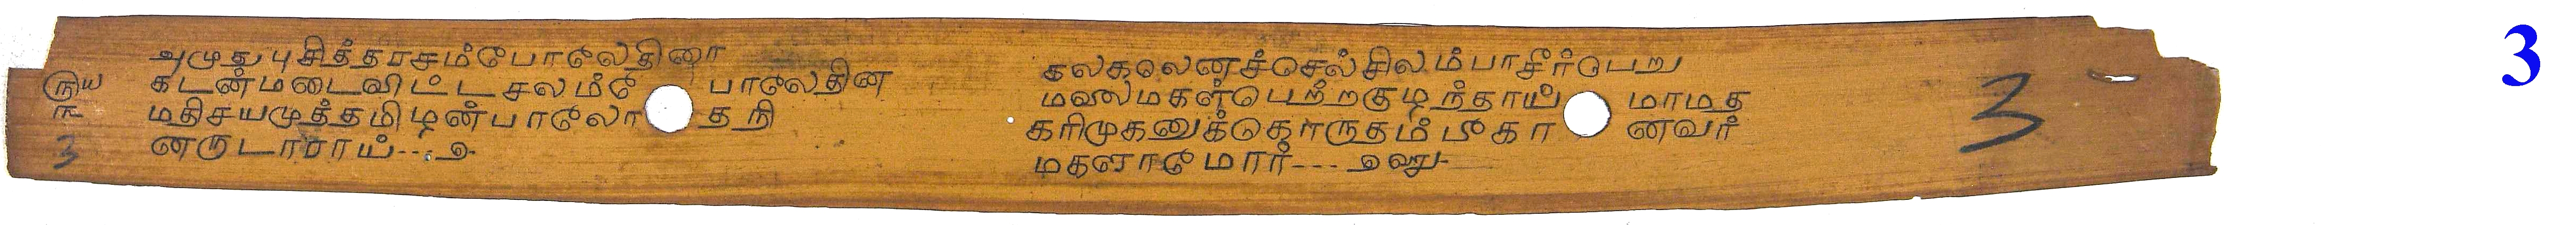 அமுதுபுசித்தரசம்போலேதினா
கடன்மடைவிட்டசலம்போலேதின
மதிசயமுத்தமிழின்பாலோ தநி
னருடாராய்---உ
கலகலெனச்செல்சிலம்பாசீர்பெறு
மலைமகள்பெற்றகுழந்தாய் மாமத
கரிமுகனுக்
மகளாமோர்---
ரு
ங
3
3
3